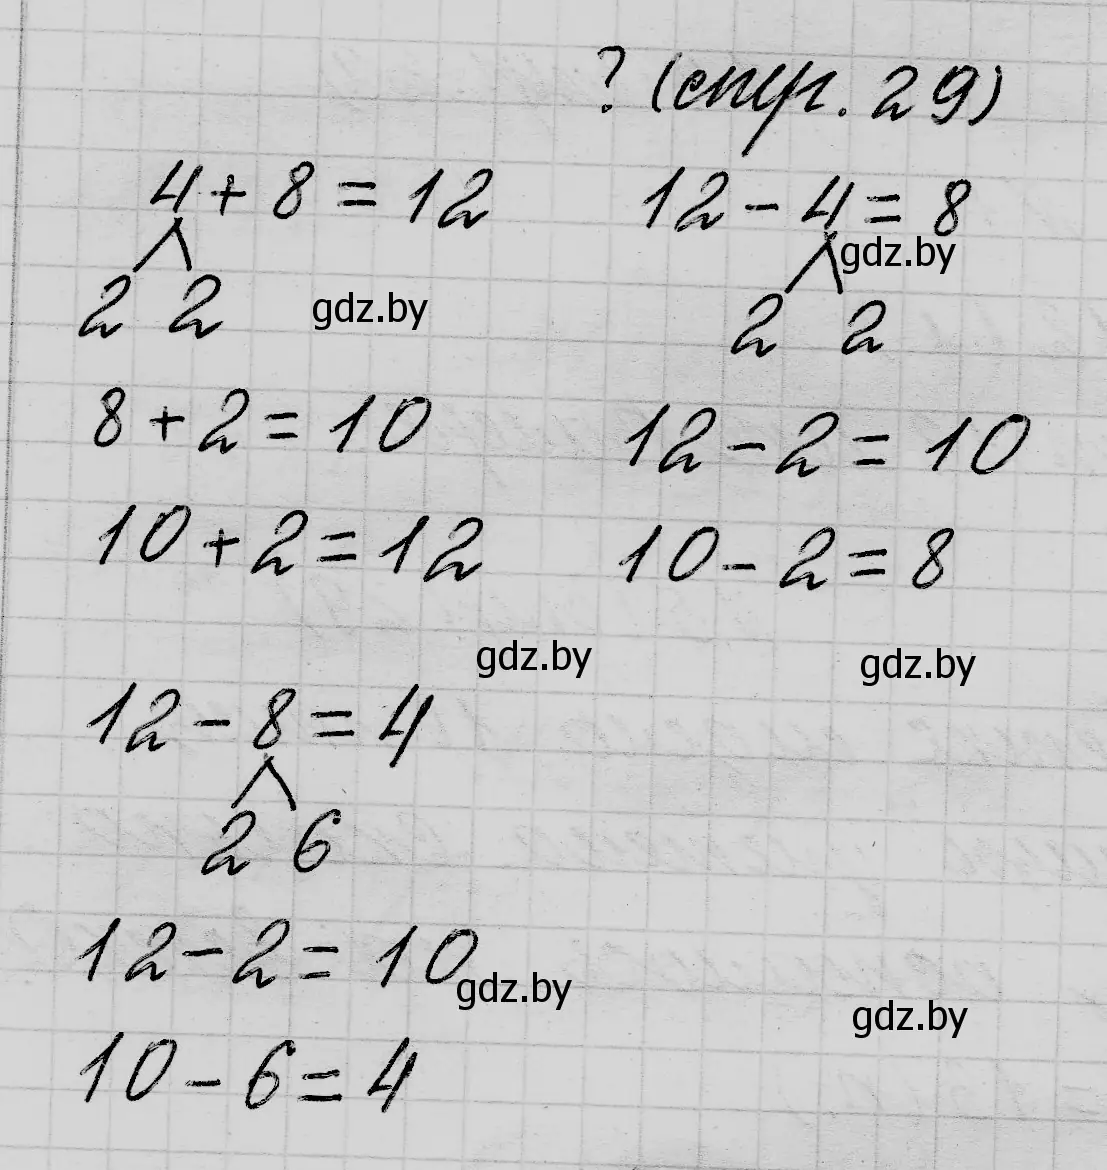 ? (стр. 29)
4 + 8 = 12
2 2
gdz.by
8 + 2 = 10
10 + 2 = 12
12 - 4 = 8
gdz.by
2 2
12 - 2 = 10
10 - 2 = 8
gdz.by
gdz.by
12 - 8 = 4
2 6
12 - 2 = 10
gdz.by
gdz.by
10 - 6 = 4